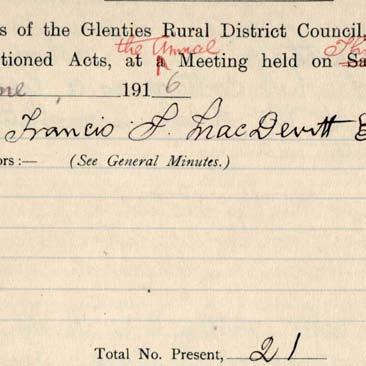 s of the Glenties Rural District Council,
the Annual
tioned Acts, at a Meeting held on Sa
ne , 1916
Francis S. MacDevitt E
ors :— (See General Minutes.)
Total No. Present, 21